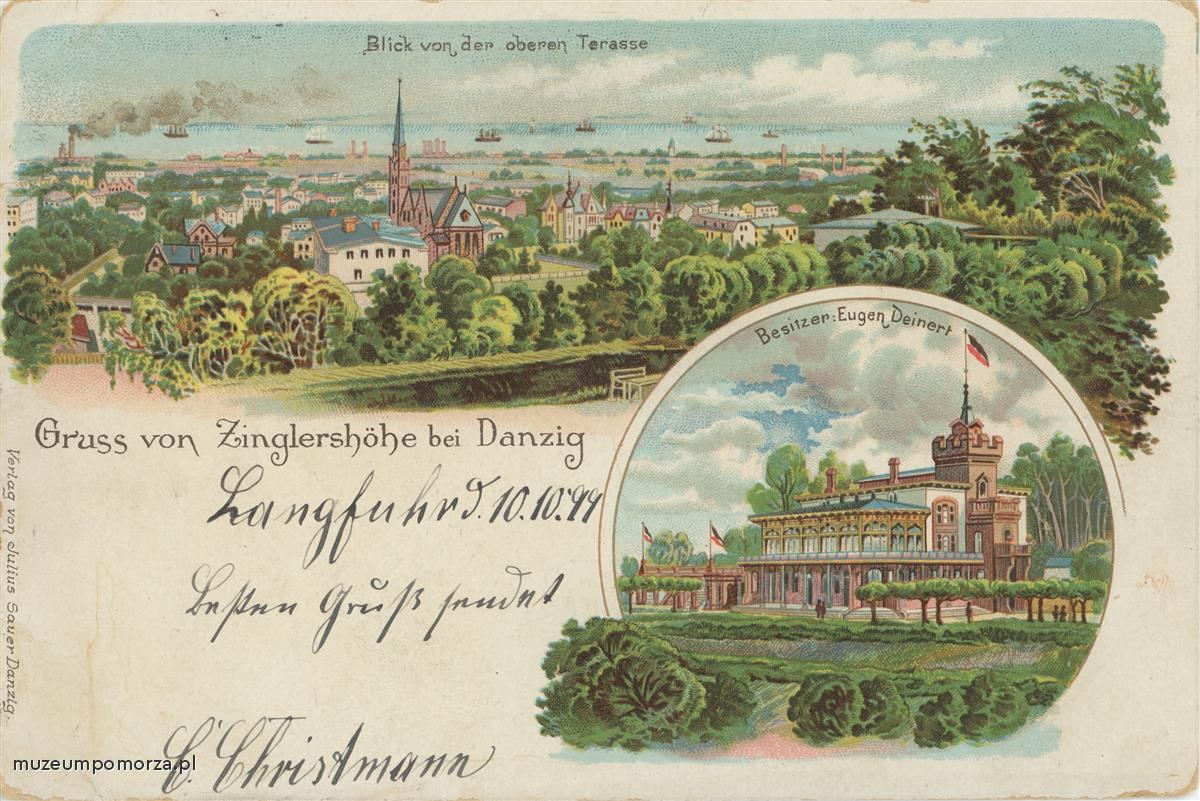 Blick von der oberen Terasse
Besitzer: Eugen Deinert
Gruss von Zinglershöhe bei Danzig
Langfuhr d. 10.10.99
Besten Gruß sendet
C. Christmann
Verlag von Julius Sauer Danzig.
muzeumpomorza.pl